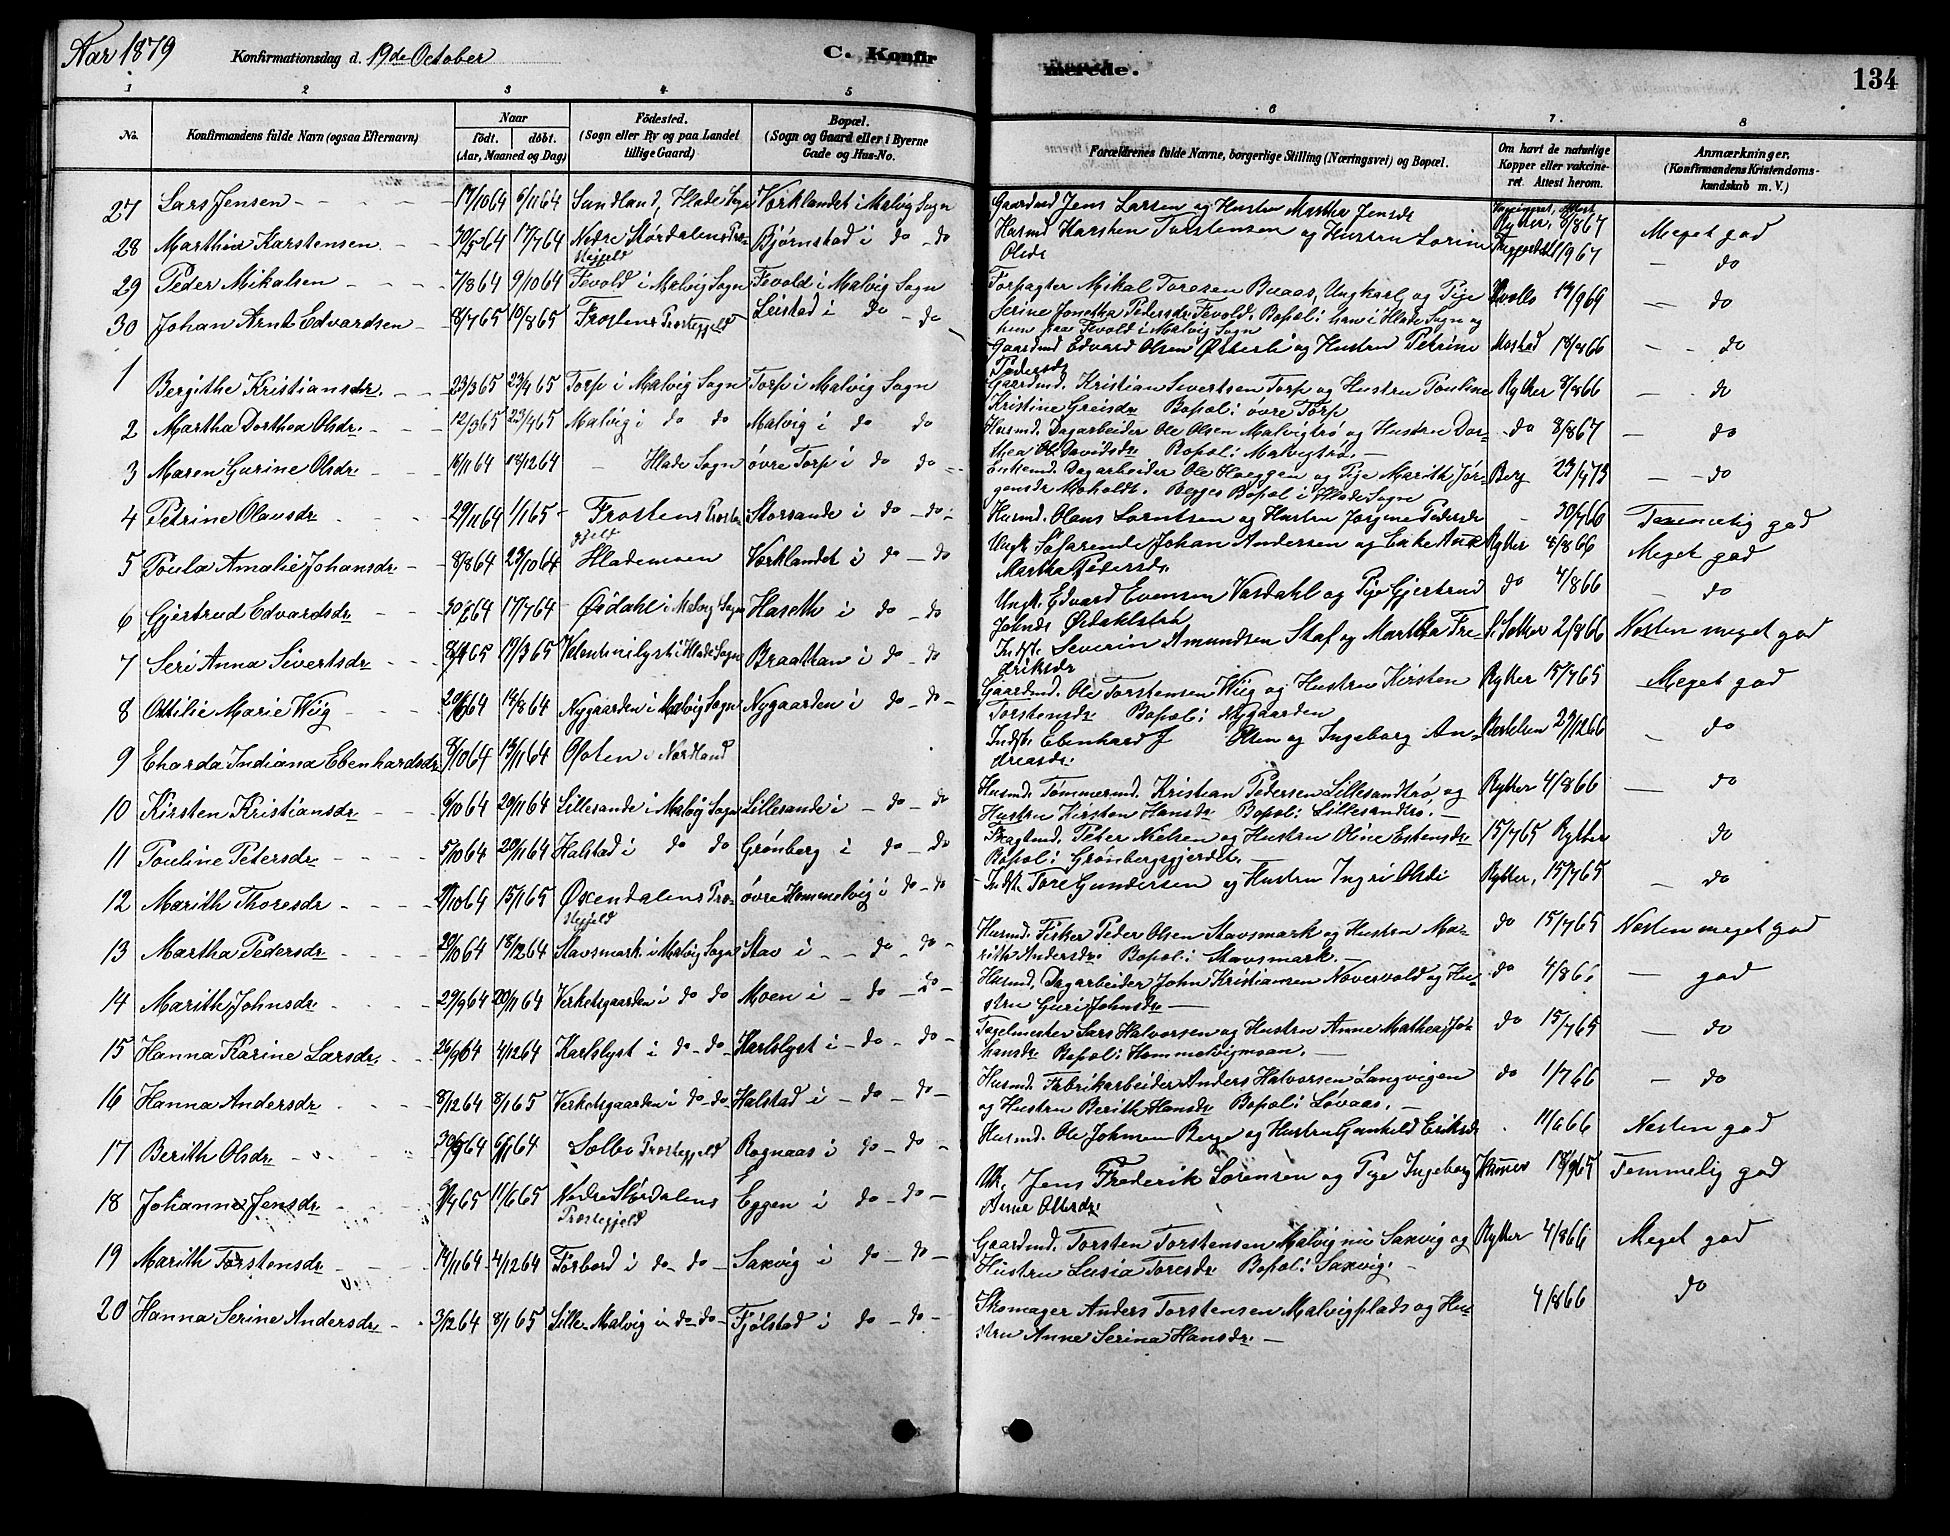 Aar 1879 Konfirmationsdag d. 19de October C. Konfirmerede. 134
1 2 3 4 5 6 7. 8
No. Konfirmandens fulde Navn (ogsaa Efternavn) Naar födt. döbt. (Aar, Maaned og Dag) Födested. (Sogn eller By og paa Landet tillige Gaard) Bopæl. (Sogn og Gaard eller i Byerne Gade og Hus-No. Forældrenes fulde Navne, borgerlige Stilling (Næringsvei) og Bopæl. Om havt de naturlige Kopper eller vakcineret. Attest herom. Anmærkninger. (Konfirmandens Kristendomskundskab m. V.)
27 Lars Jensen 17/10 64 6/11 64 Sundland, Hlade Sogn Værklandet i Malvig Sogn Gaardmd Jens Larsen og Hustru Martha Jensdr Rytter, 8/8 67 Meget god
28 Marthin Karstensen 17/7 64 Nedre Størdalens Prestegjeld Bjørnstad i do - do Husmd Karsten Torstensen og Hustru Lorine
Olsdr do
29 Peder Mikalsen 7/8 64 9/10 64 Fevold i Malvig Sogn Fevold i Malvig Sogn Forpagter Mikal Toresen Buaas, Ungkarl og Pige
Serine Jonetha Pedersdr Fevold. Bopæl: han i Hlade Sogn og
hun paa Fevold i Malvig Sogn do
30 Johan Arnt Edvardsen 8/7 65 Frostens Prestegjeld Leistad i do - do Gaardmd Edvard Olsen Østerli og Hustru Petrine
Pedersdr Mostad do
1 Bergithe Kristiansdr. 23/3 65 23/4 65 Torp i Malvig Sogn Torp i Malvig Sogn Gaardmd. Kristian Sivertsen Torp og Hustru Pouline
Kristine Greisdr Bopæl: øvre Torp Rytter 8/8 66 do
2 Martha Dorthea Olsdr. 12/3 65 23/4 65 Malvig i do do Malvig i do do Husmd. Dagarbeider Ole Olsen Malvigtrø og Hustru Dorthea
Davidsdr. Bopæl: Malvigtrø. do 8/8 67 do
3 Maren Gurine Olsdr. 18/12 64 Hlade Sogn øvre Torp i do do Dagarbeider Ole Hoeggen og Pige Marith Jørgensdr
Moholdt. Begges Bopæl i Hlade Sogn Berg do
4 Petrine Olausdr 29/11 64 1/1 65 Frostens Prestegjeld Storsande i do - do Husmd. Olaus Lorntsen og Hustru Pedersdr Temmelig god
5 Poula Amalie Johansdr. 8/8 64 23/10 64 Hlademoen Værklandet i do - do Ungk. Søfarende Johan Andersen og Enke Ane
Martha Pedersdr. Rytter 8/8 66 Meget god
6 Gjertrud Edvardsdr. 17/7 64 Øsdahl i Malvig Sogn Haseth i do - do Ungk. Edvard Evensen Vasdahl og Pige Gjertrud
do 4/8 66 do
7 Seri Anna Sivertsdr 17/3 65 Valentinilyst i Hlade Sogn Braathan i do - do Indst. Severin Amundsen Staf og Martha Fredriksdr
2/8 66 Nesten meget god
8 Ottilie Marie Wiig 14/8 64 Nygaarden i Malvig Sogn Nygaarden i do - do Gaardmd. Ole Torstensen Wiig og Hustru Kirsten
Torstensdr. Bopæl: Nygaarden Rytter 15/7 65 Meget god
9 Eharda Indiana Ebenhardsdr. 8/10 64 13/11 64 Ofoten i Nordland Indst. Ebenhard J Olsen og Ingeborg Andreasdr.
do
10 Kirsten Kristiansdr. 6/10 64 20/11 64 Lillesande i Malvig Sogn Lillesande i - do - do Husmd. Tømmermd. Kristian Pedersen Lillesandtrø og
Hustru Kirsten Hansdr. Bopæl: Lillesandtrø. Rytter 4/8 66 do
11 Pouline Petersdr. 5/10 64 20/11 64 Halstad i do do Grønberg i do - do Peter Nielsen og Hustru Oline Estensdr.
Bopæl: Grønbergsgjerdet. 15/7 65 Rytter do
12 Marith Thoresdr 15/1 65 Øxendalens Prestegjeld øvre Hommelvig i do - do Indst. Tore Gundersen og Hustru Ingri Olsdr Rytter, 15/7 65 do
13 Martha Pedersdr. 29/10 64 18/12 64 Stavsmark. i Malvig Sogn Stav i - do - do Husmd. Fisker Peder Olsen Stavsmark og Hustru Marith
Andersdr. Bopæl: Stavsmark. do 15/7 65 Nesten meget god
14 Marith Johnsdr. 29/9 64 20/11 64 Verketsgaarden i do do Moen i - do - do Husmd, Dagarbeider John Kristiansen Nævervold og Hustru
Guri Johnsdr. do god
15 Hanna Karine Larsdr. 26/9 64 4/12 64 Karlslyst i do - do Karlslyst i - do - do Teglmester Lars Halvorsen og Hustru Anne Mathea Johansdr.
Bopæl: Hommelvigmoan. do 15/7 65 do
16 Hanna Andersdr. 8/12 64 8/1 65 Verketsgaarden i do - do Halstad i - do - do Husmd. Fabrikarbeider Anders Halvorsen Langvigen
og Hustru Berith Hansdr. Bopæl: Løvaas. do 1/7 66 do
17 Berith Olsdr. Selbo Prestegjeld Rognaas i do - do Husmd. Ole Johnsen Berge og Hustru Gunhild Eriksdr. 11/6 66 Nesten god
18 Johanna Jensdr. 11/6 65 Nedre Størdalens Prestegjeld Eggen i do - do Uk. Jens Frederik Sørensen og Pige Ingeborg
Temmelig god
19 Marith Torstensdr. 14/11 64 4/12 64 Forbord i do - do Saxvig i do - do Gaardmd. Torsten Torstensen Malvig nu Saxvig og
Hustru Lusia Toresdr. Bopæl: Saxvig. Rytter 4/8 66 Meget god
20 Hanna Serine Andersdr. 3/12 64 8/1 65 Lille-Malvig i do - do Fjølstad i do - do Skomager Anders Torstensen Malvigplads og Hustru
Anne Serina Hansdr. 4/8 66 do